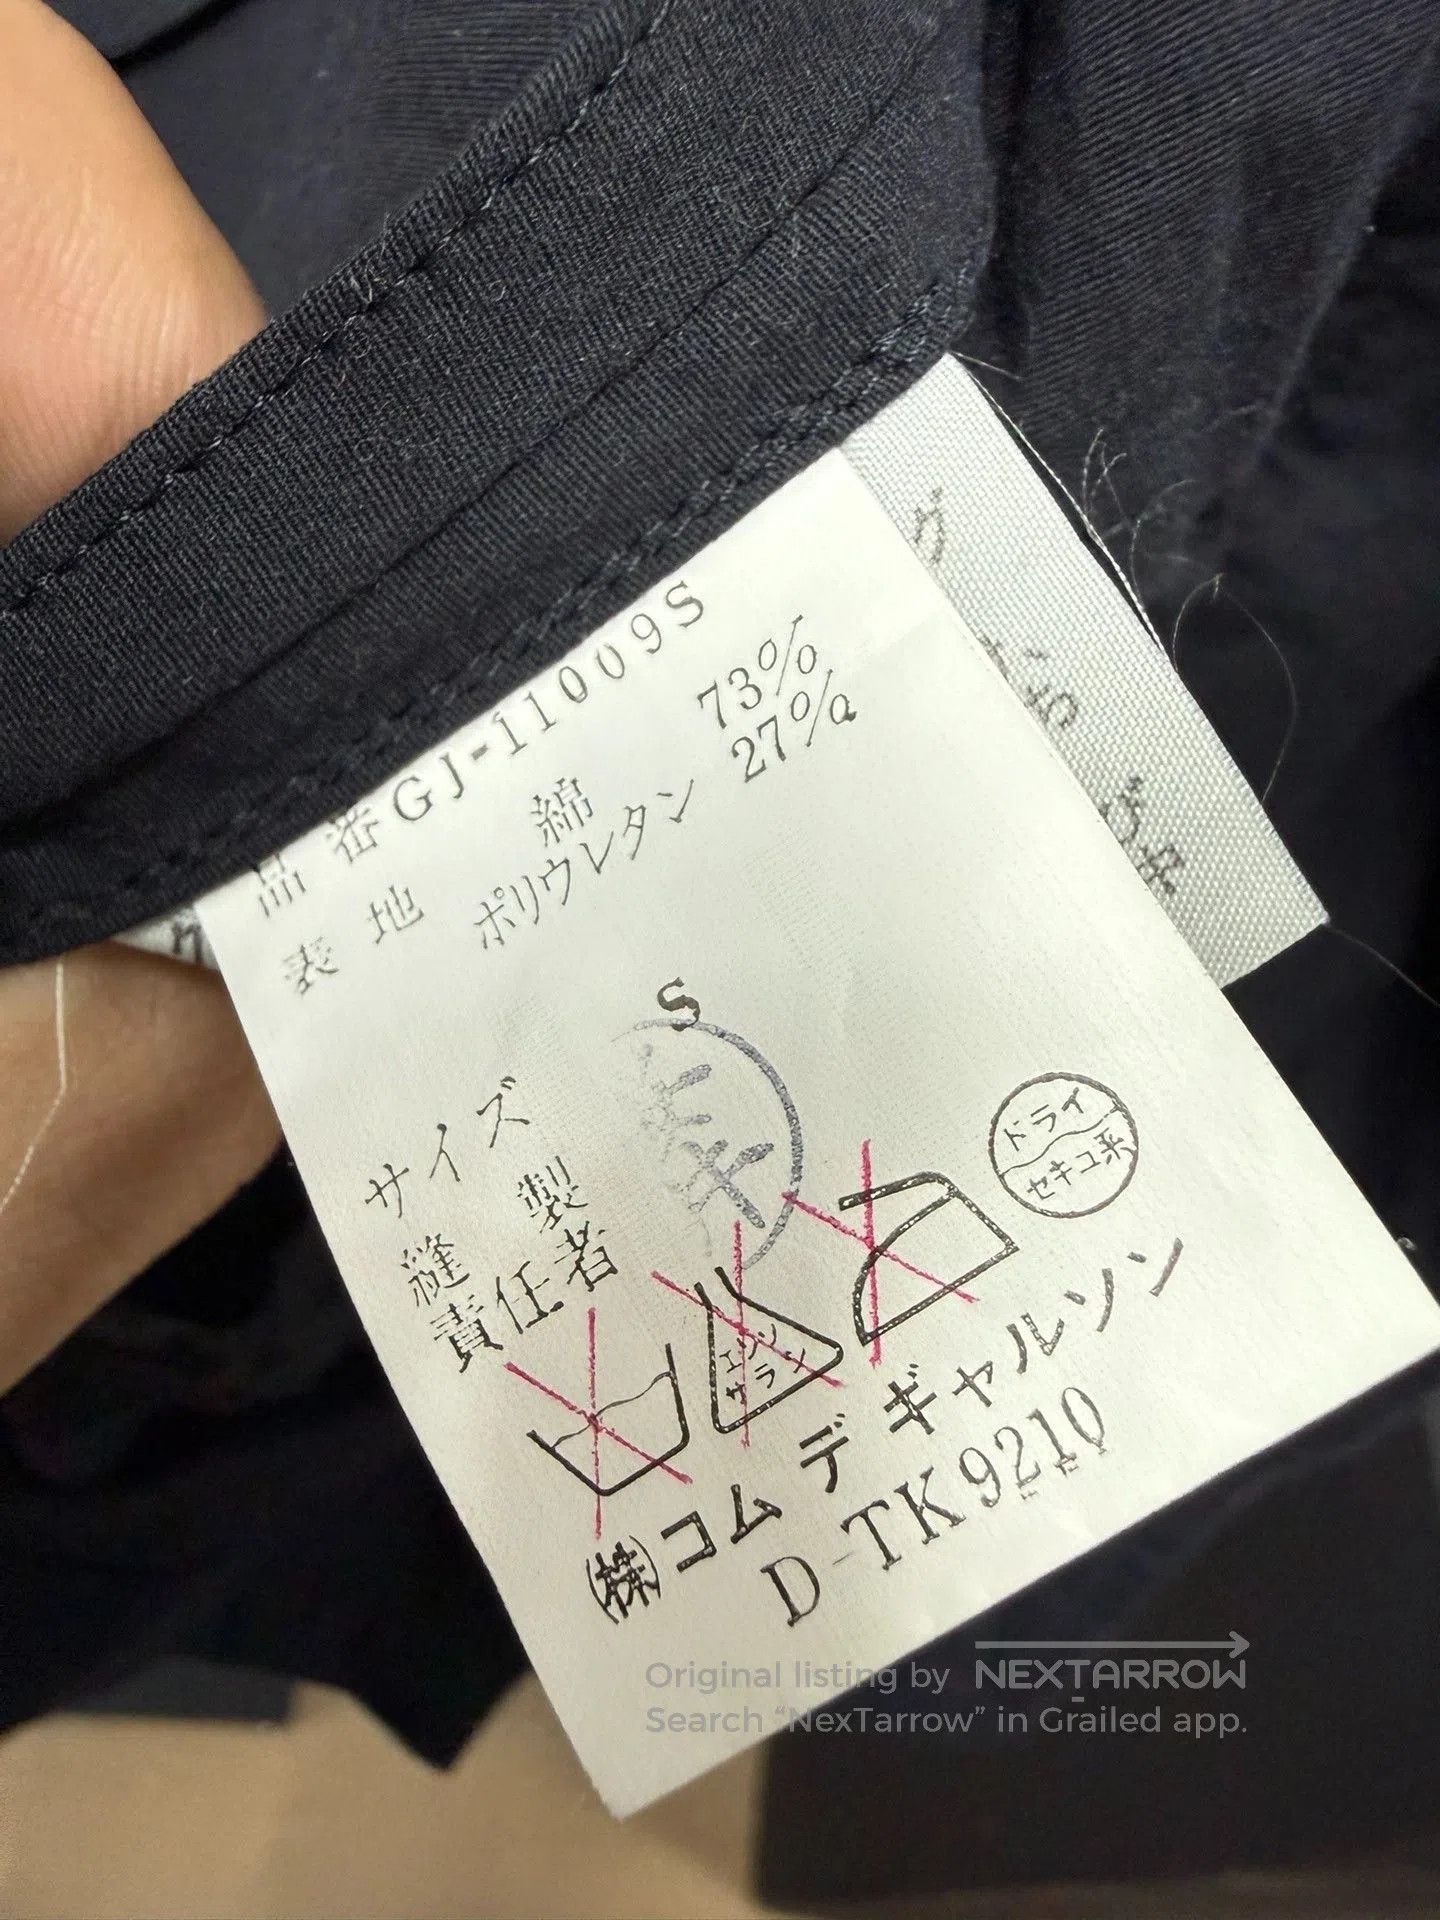 品番 GJ-11009S
表地 綿 73%
ポリウレタン 27%
サイズ S
縫製
責任者
エンソ
サラシ
ドライ
セキユ系
㈱コム デ ギャルソン
D-TK9210
Original listing by NEXTARROW
Search “NexTarrow” in Grailed app.